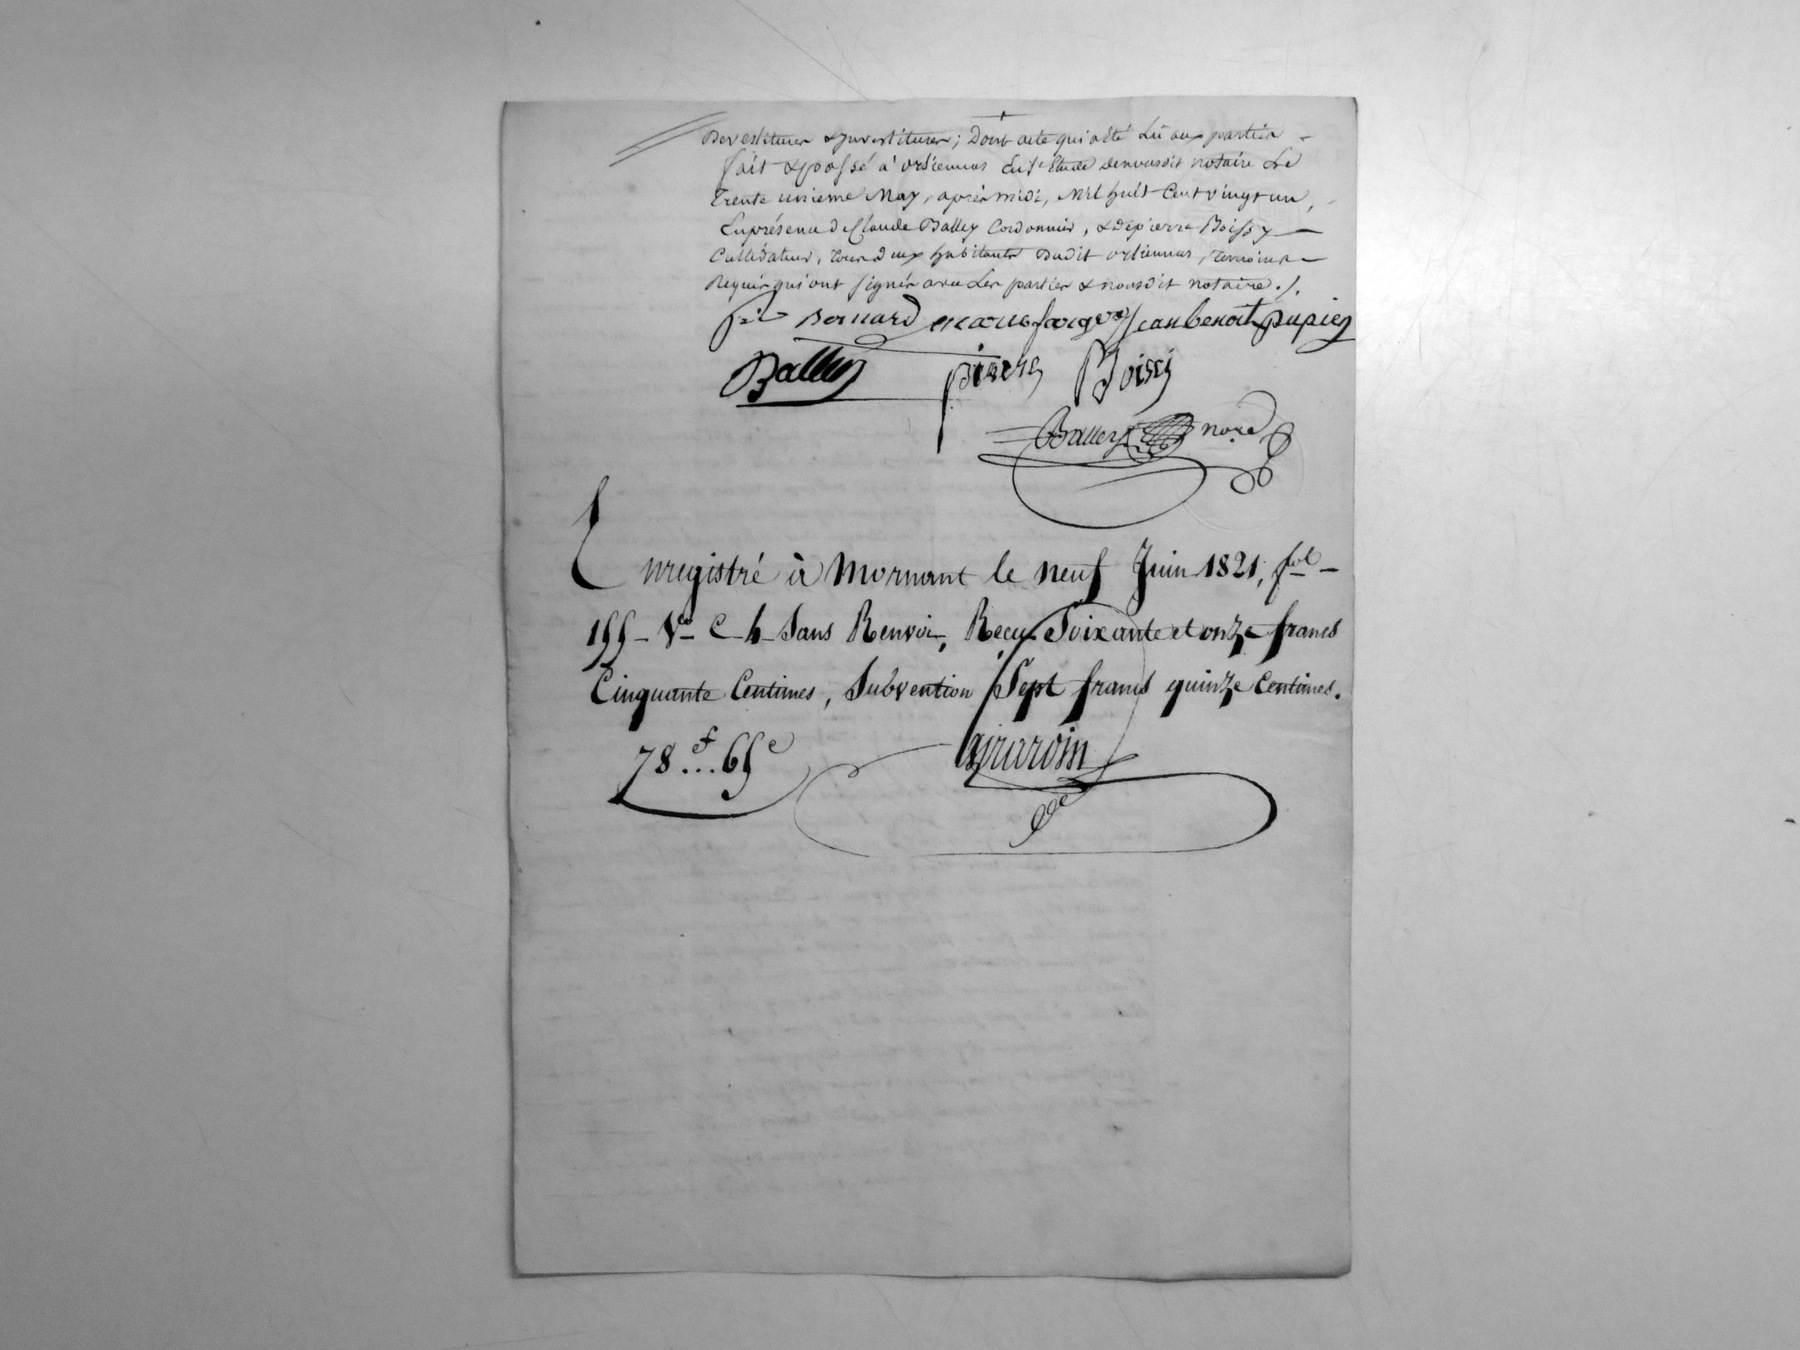 Devestitures & Jnvestitures; Dont acte qui a été Lû aux parties
fait & passé à orliennas En l'Etude de nousdit notaire Le
Trente unieme May, après midi, Mil huit Cent vingt un,
En présence de Claude Balley Cordonnier, & de pierre Boissy
Cultivateur, tous deux habitants dudit orliennas, temoins
Requis qui ont signés avec Les parties & nousdit notaire ./.
Bernard jean benoit pupier
Balley pierre Boissi
Balley nore
Enregistré à Mornant le neuf Juin 1821, fol
155 Vo C 4 Sans Renvoi, Reçu Soixante et onze francs
Cinquante Centimes, Subvention Sept francs quinze Centimes.
78 f ... 65 c
Girardin